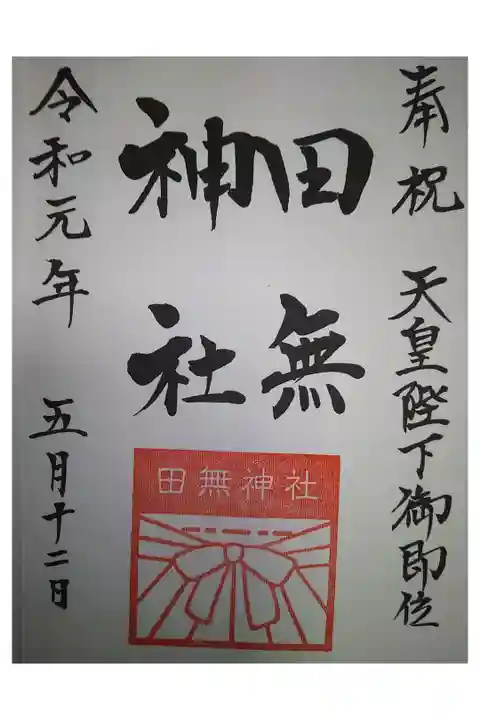 奉祝 天皇陛下御即位
田無
神社
令和元年 五月十二日
田無神社